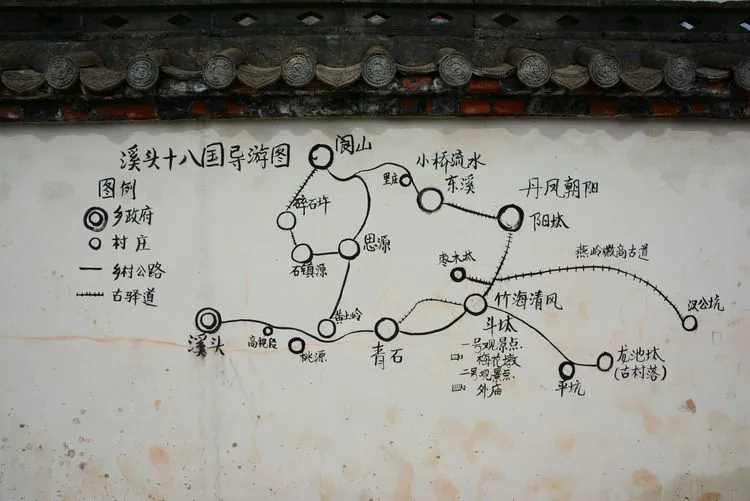 溪头十八国导游图
图例
乡政府
村庄
乡村公路
古驿道
阆山
碎石圲
石镇源
思源
里庄
小桥流水
东溪
丹凤朝阳
阳坑
枣木坑
燕岭徽商古道
汉公坑
竹海清风
斗坑
一号观景点
梅花墩
二号观景点
外庙
平坑
龙池坑
(古村落)
溪头
高规段
桃源
黄土岭
青石